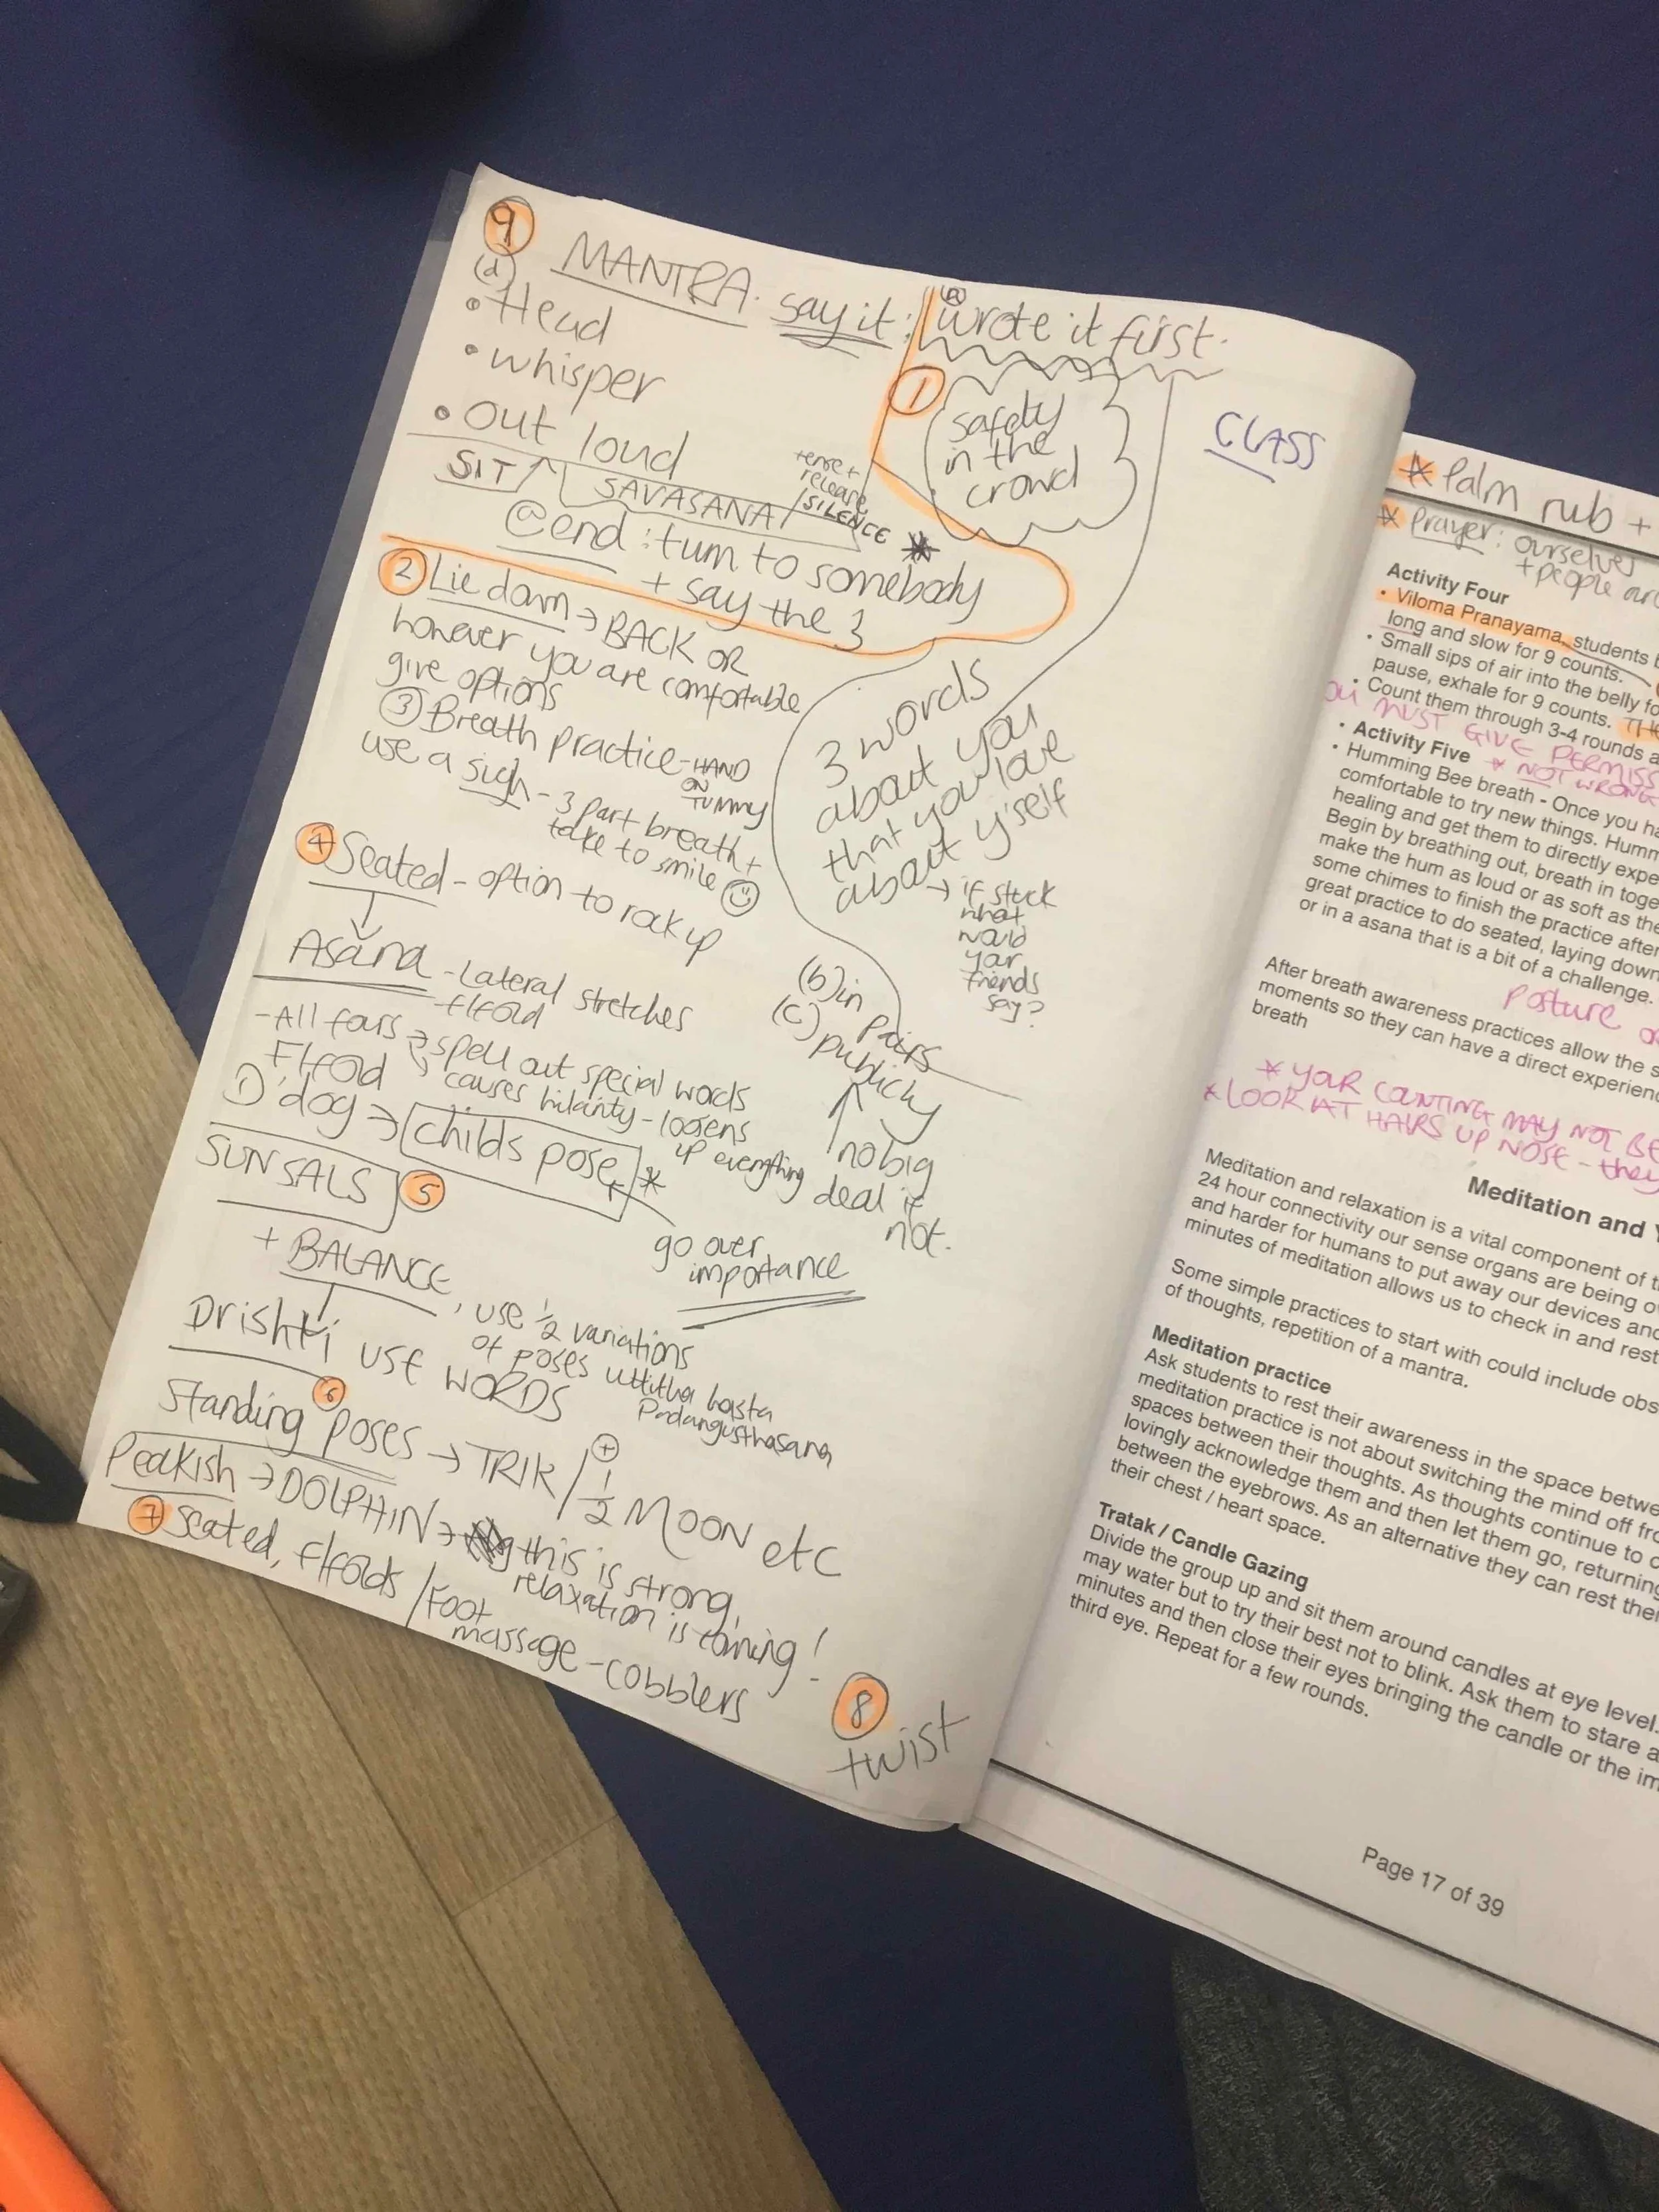 9
(d)
MANTRA. say it:
(a)
wrote it first.
• Head
• whisper
• out loud
SIT
SAVASANA
tense +
release
SILENCE
@end: turn to somebody
+ say the 3
1
safety
in the
crowd
CLASS
3 words
about you
that you love
about y'self
→ if stuck
what
would
your
friends
say?
(b) in pairs
(c) publicly
no big
deal if
not.
2 Lie down → BACK OR
however you are comfortable
give options
3 Breath practice - HAND
ON
TUMMY
use a sigh - 3 part breath +
take to smile
4 Seated - option to rock up
Asana - Lateral stretches
- f/fold
- All fours → spell out special words
F/fold
causes hilarity - loosens
up everything
D'dog → childs pose *
go over
importance
SUNSALS 5
+ BALANCE, use ½ variations
of poses uttitha hasta
Padangusthasana
Drishti USE WORDS
6
Standing poses → TRIK / + ½ MOON etc
Peakish → DOLPHIN → this is strong,
relaxation is coming!
7 seated, f/folds / Foot
massage - cobblers
8
twist
* Palm rub +
* Prayer: ourselves
+ people
Activity Four
• Viloma Pranayama, students
long and slow for 9 counts.
• Small sips of air into the belly
pause, exhale for 9 counts.
• Count them through 3-4 rounds
MUST GIVE
• Activity Five * NOT WRONG
• Humming Bee breath - Once you
comfortable to try new things.
healing and get them to directly
Begin by breathing out, breath in
make the hum as loud or as soft as
some chimes to finish the practice
great practice to do seated, laying down
or in a asana that is a bit of a challenge.
posture
After breath awareness practices allow the
moments so they can have a direct
breath
* YOUR COUNTING MAY NOT BE
* LOOK AT HAIRS UP NOSE - they
Meditation and
Meditation and relaxation is a vital component of
24 hour connectivity our sense organs are being
and harder for humans to put away our devices and
minutes of meditation allows us to check in and rest
Some simple practices to start with could include
of thoughts, repetition of a mantra.
Meditation practice
Ask students to rest their awareness in the space
meditation practice is not about switching the mind off
spaces between their thoughts. As thoughts continue to
lovingly acknowledge them and then let them go, returning
between the eyebrows. As an alternative they can rest
their chest / heart space.
Tratak / Candle Gazing
Divide the group up and sit them around candles at eye level.
may water but to try their best not to blink. Ask them to stare
minutes and then close their eyes bringing the candle or the
third eye. Repeat for a few rounds.
Page 17 of 39